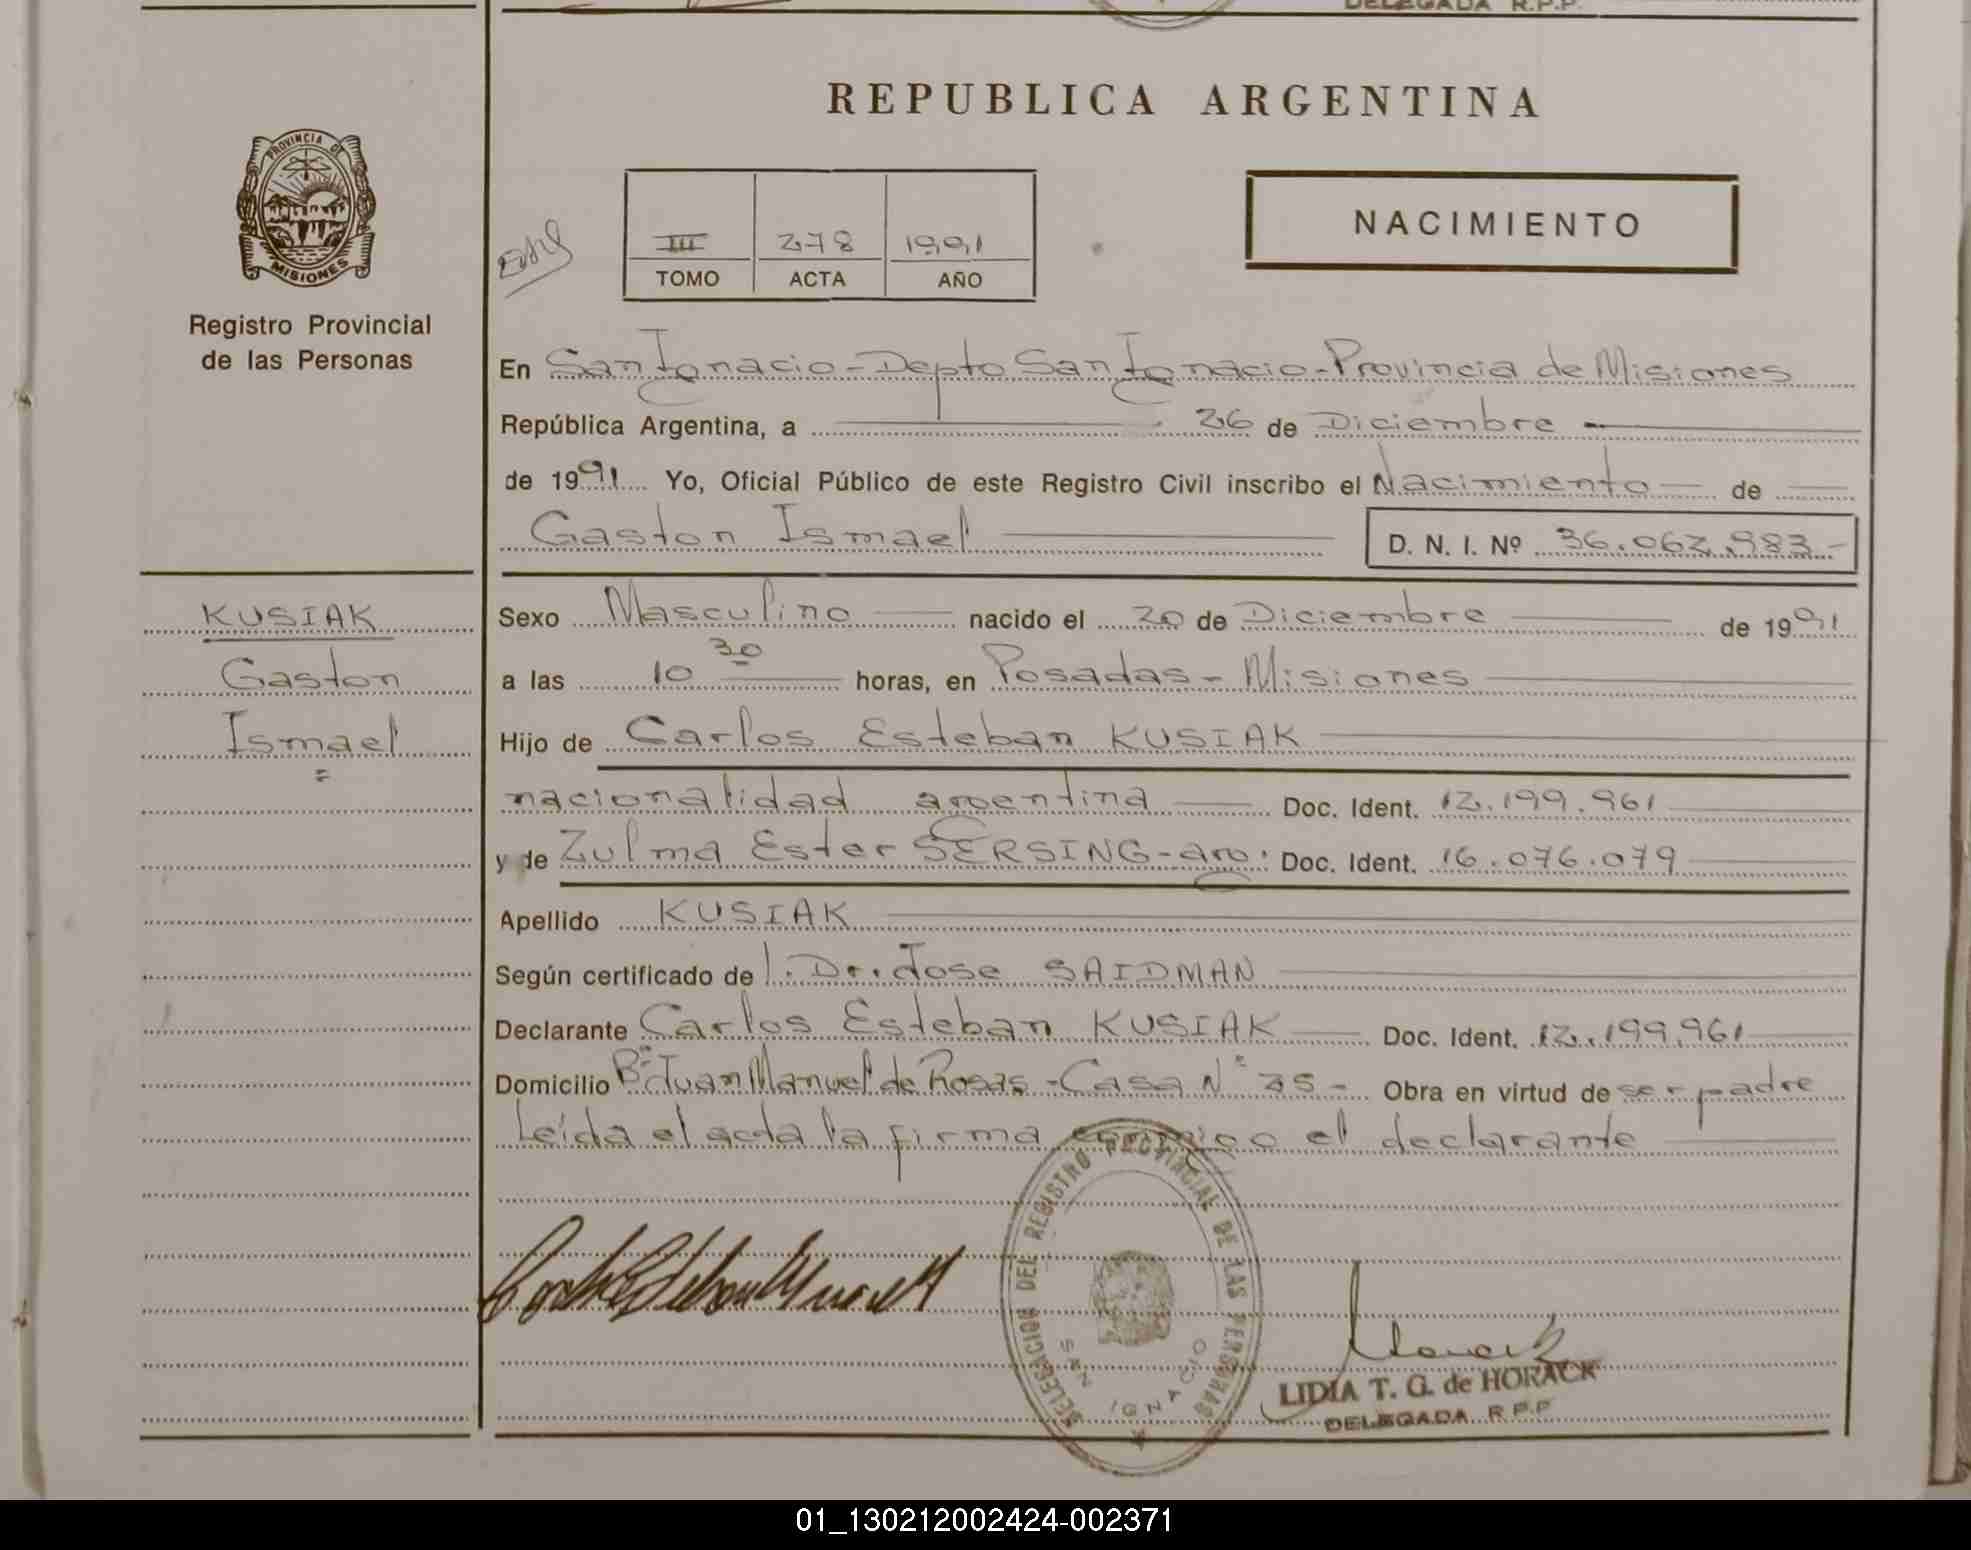 DELEGADA R.P.P.
REPUBLICA ARGENTINA
PROVINCIA DE
MISIONES
Registro Provincial
de las Personas
III 278 1991
TOMO ACTA AÑO
NACIMIENTO
En San Ignacio - Depto San Ignacio - Provincia de Misiones
República Argentina, a 26 de Diciembre
de 1991 Yo, Oficial Público de este Registro Civil inscribo el Nacimiento de
Gaston Ismael D. N. I. Nº 36.062.983.-
KUSIAK
Gaston
Ismael
Sexo Masculino nacido el 20 de Diciembre de 1991
a las 10 30 horas, en Posadas - Misiones
Hijo de Carlos Esteban KUSIAK
nacionalidad argentina Doc. Ident. 12.199.961
y de Zulma Ester SERSING - arg. Doc. Ident. 16.076.079
Apellido KUSIAK
Según certificado de l. Dr. Jose SAIDMAN
Declarante Carlos Esteban KUSIAK Doc. Ident. 12.199.961
Domicilio Bº Juan Manuel de Rosas - Casa Nº 35 - Obra en virtud de ser padre
Leída el acta la firma conmigo el declarante
DELEGACION DEL REGISTRO PROVINCIAL DE LAS PERSONAS
SAN IGNACIO
LIDIA T. G. de HORACK
DELEGADA R.P.P.
01_130212002424-002371